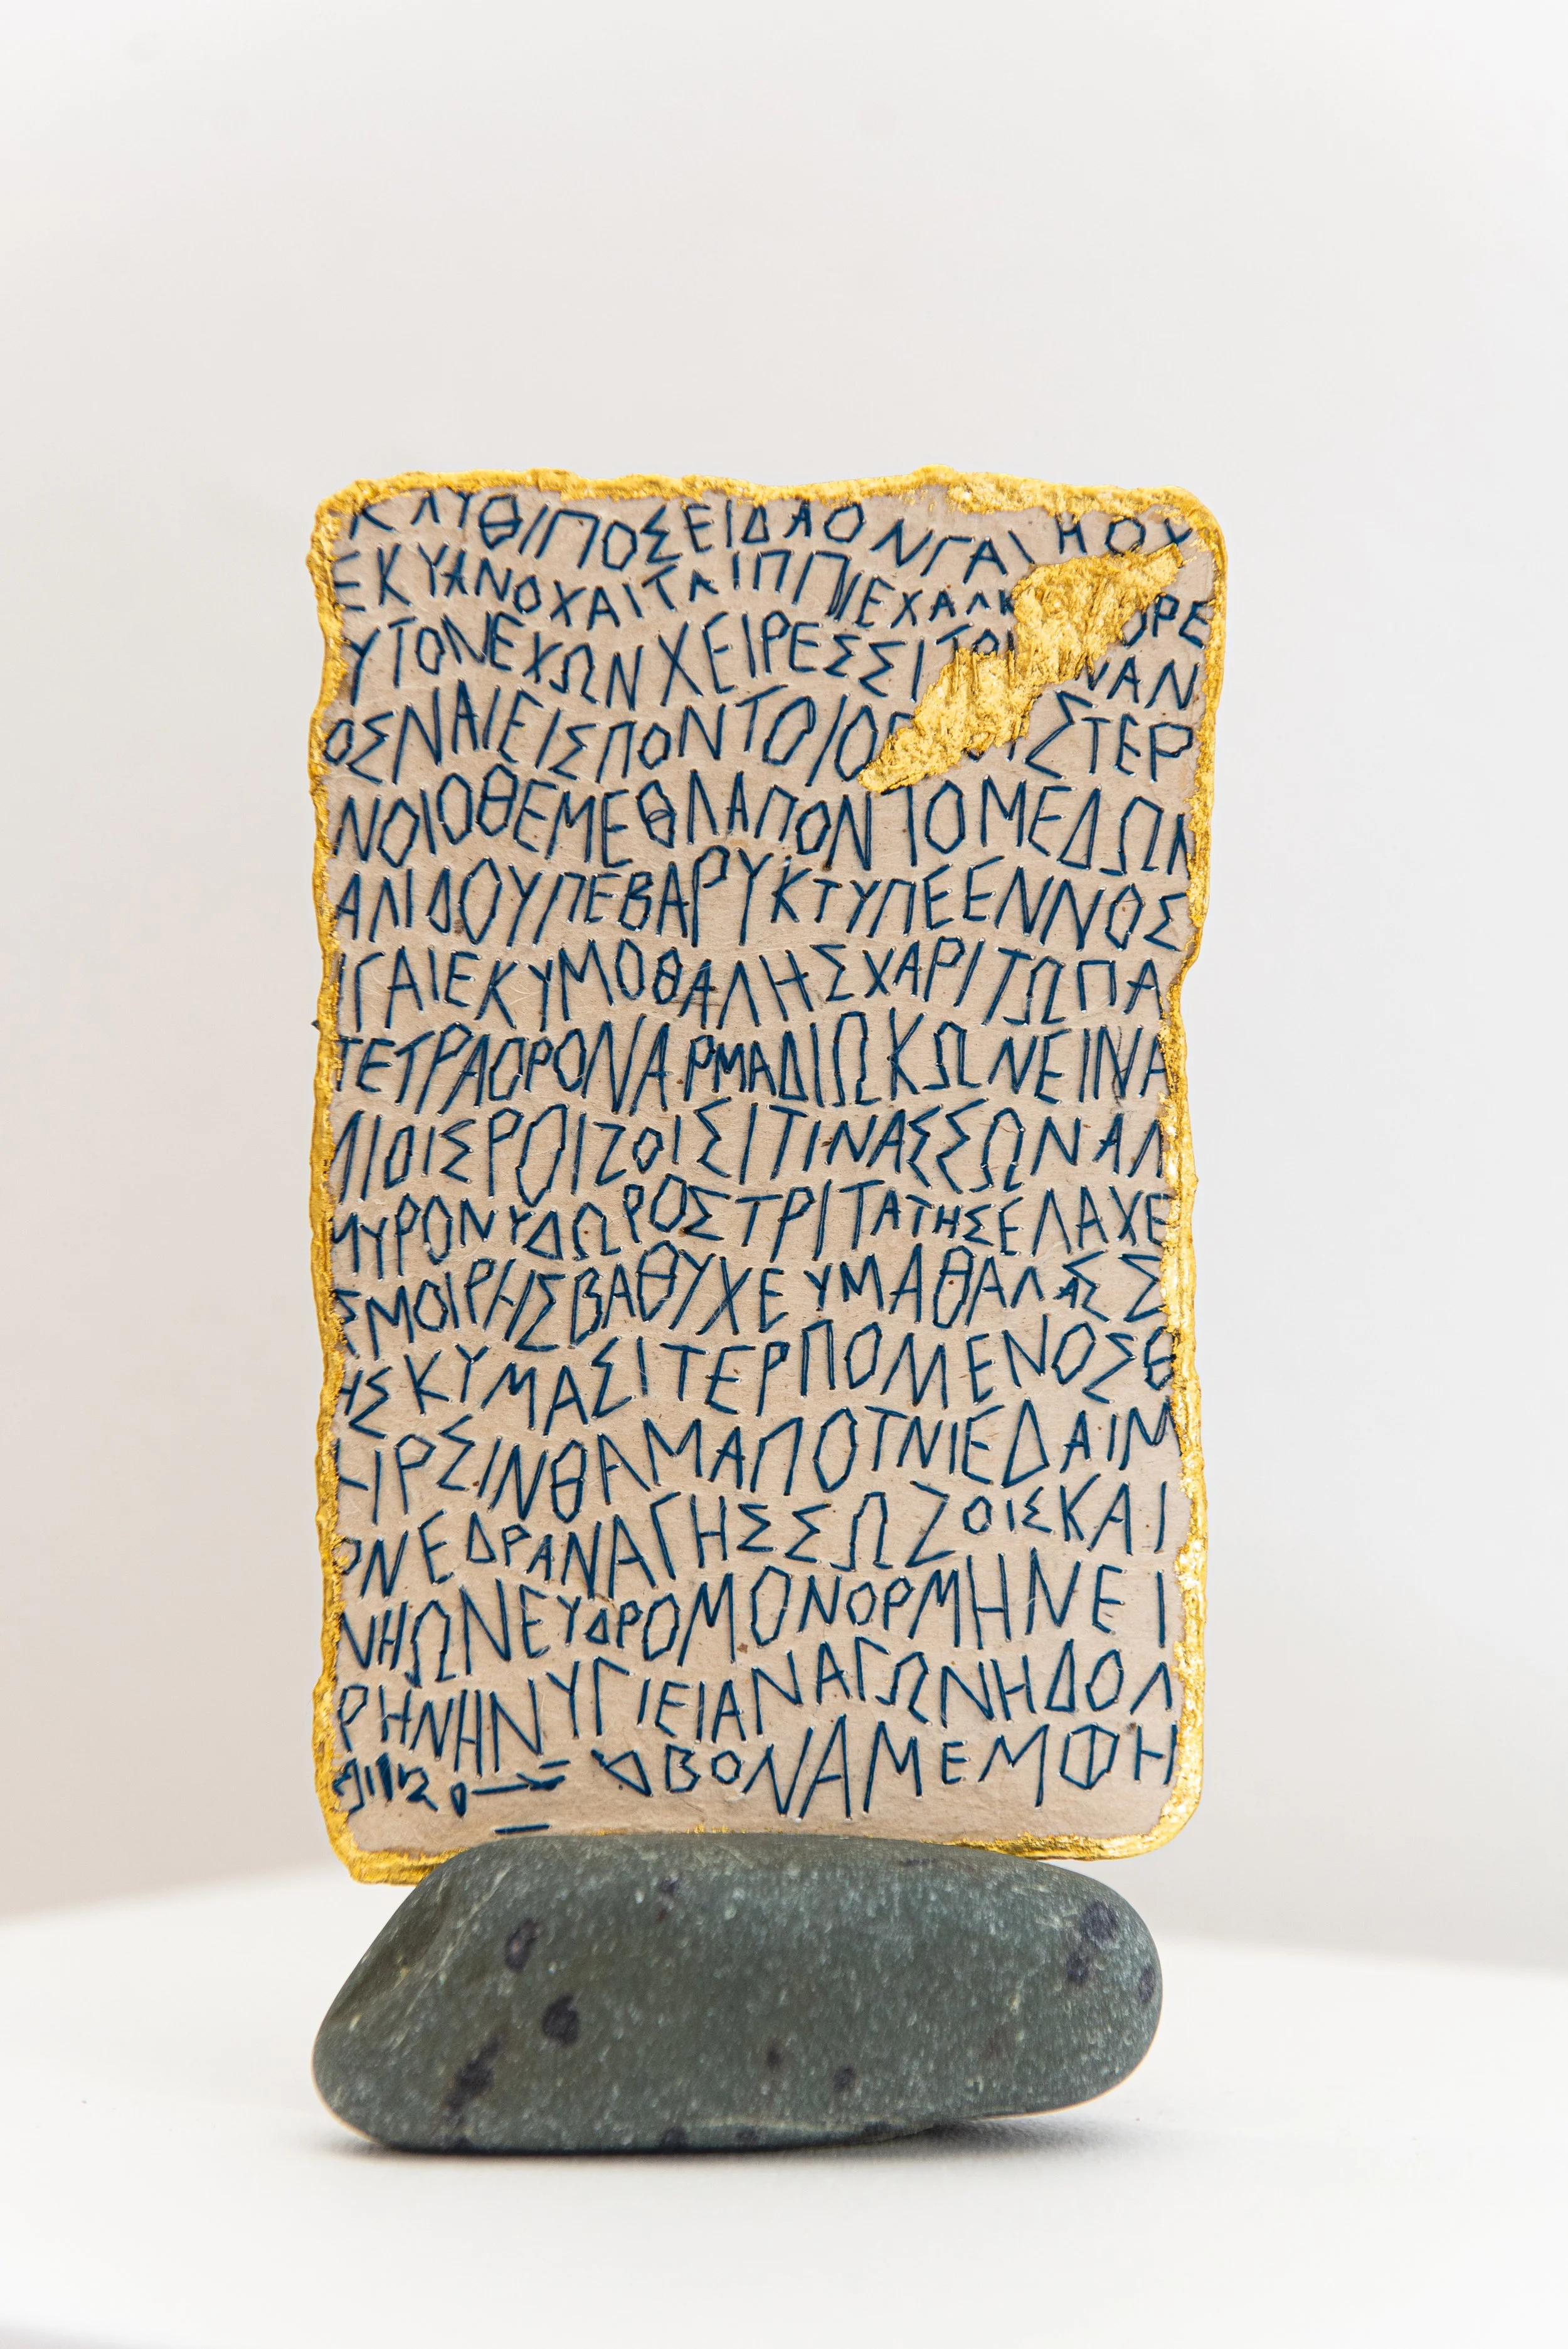 ΚΛΥΘΙΠΟΣΕΙΔΑΟΝΓΑΙΗΟΧ
ΕΚΥΑΝΟΧΑΙΤΑΙΠΠΙΕΧΑΛΚ ΟΡΕ
ΥΤΟΝΕΧΩΝΧΕΙΡΕΣΣΙΤΟΡ ΝΑΝ
ΟΣΝΑΙΕΙΣΠΟΝΤΟΙΟΒ ΣΤΕΡ
ΝΟΙΟΘΕΜΕΘΛΑΠΟΝΤΟΜΕΔΩΝ
ΑΛΙΔΟΥΠΕΒΑΡΥΚΤΥΠΕΕΝΝΟΣ
ΙΓΑΙΕΚΥΜΟΘΑΛΗΣΧΑΡΙΤΩΠΑ
ΤΕΤΡΑΟΡΟΝΑΡΜΑΔΙΩΚΩΝΕΙΝΑ
ΛΙΟΙΣΡΟΙΖΟΙΣΙΤΙΝΑΣΣΩΝΑΛ
ΜΥΡΟΝΥΔΩΡΟΣΤΡΙΤΑΤΗΣΕΛΑΧΕ
ΣΜΟΙΡΗΣΒΑΘΥΧΕΥΜΑΘΑΛΑΣΣ
ΗΣΚΥΜΑΣΙΤΕΡΠΟΜΕΝΟΣΘ
ΗΡΣΙΝΘΑΜΑΠΟΤΝΙΕΔΑΙΜ
ΟΝΕΔΡΑΝΑΓΗΣΣΩΖΟΙΣΚΑΙ
ΝΗΩΝΕΥΔΡΟΜΟΝΟΡΜΗΝΕΙ
ΡΗΝΗΝΥΓΙΕΙΑΝΑΓΩΝΗΔΟΛ
ΒΟΝΑΜΕΜΦΗ